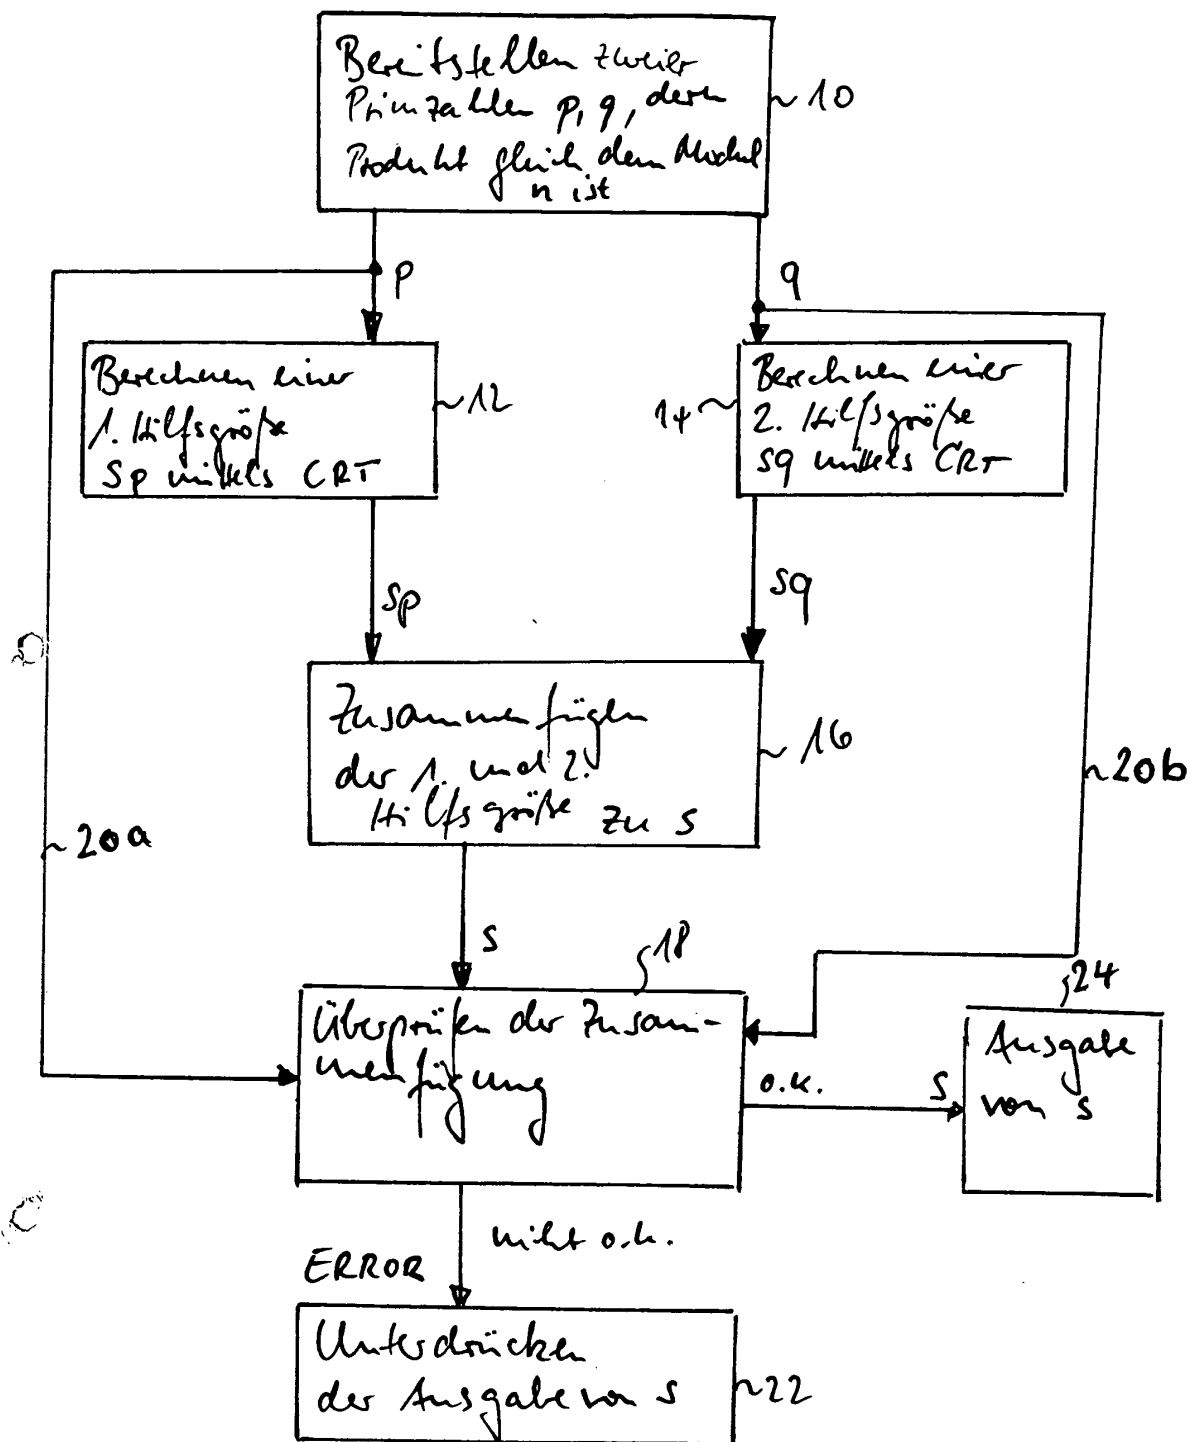 Bereitstellen zweier
Primzahlen p, q, deren
Produkt gleich dem Modul
n ist
10
p
q
Berechnen einer
1. Hilfsgröße
Sp mittels CRT
12
14
Berechnen einer
2. Hilfsgröße
Sq mittels CRT
Sp
Sq
Zusammenfügen
der 1. und 2.
Hilfsgröße zu s
16
20a
20b
s
18
24
Überprüfen der Zusam-
menfügung
o.k.
s
Ausgabe
von s
nicht o.k.
ERROR
Unterdrücken
der Ausgabe von s
22